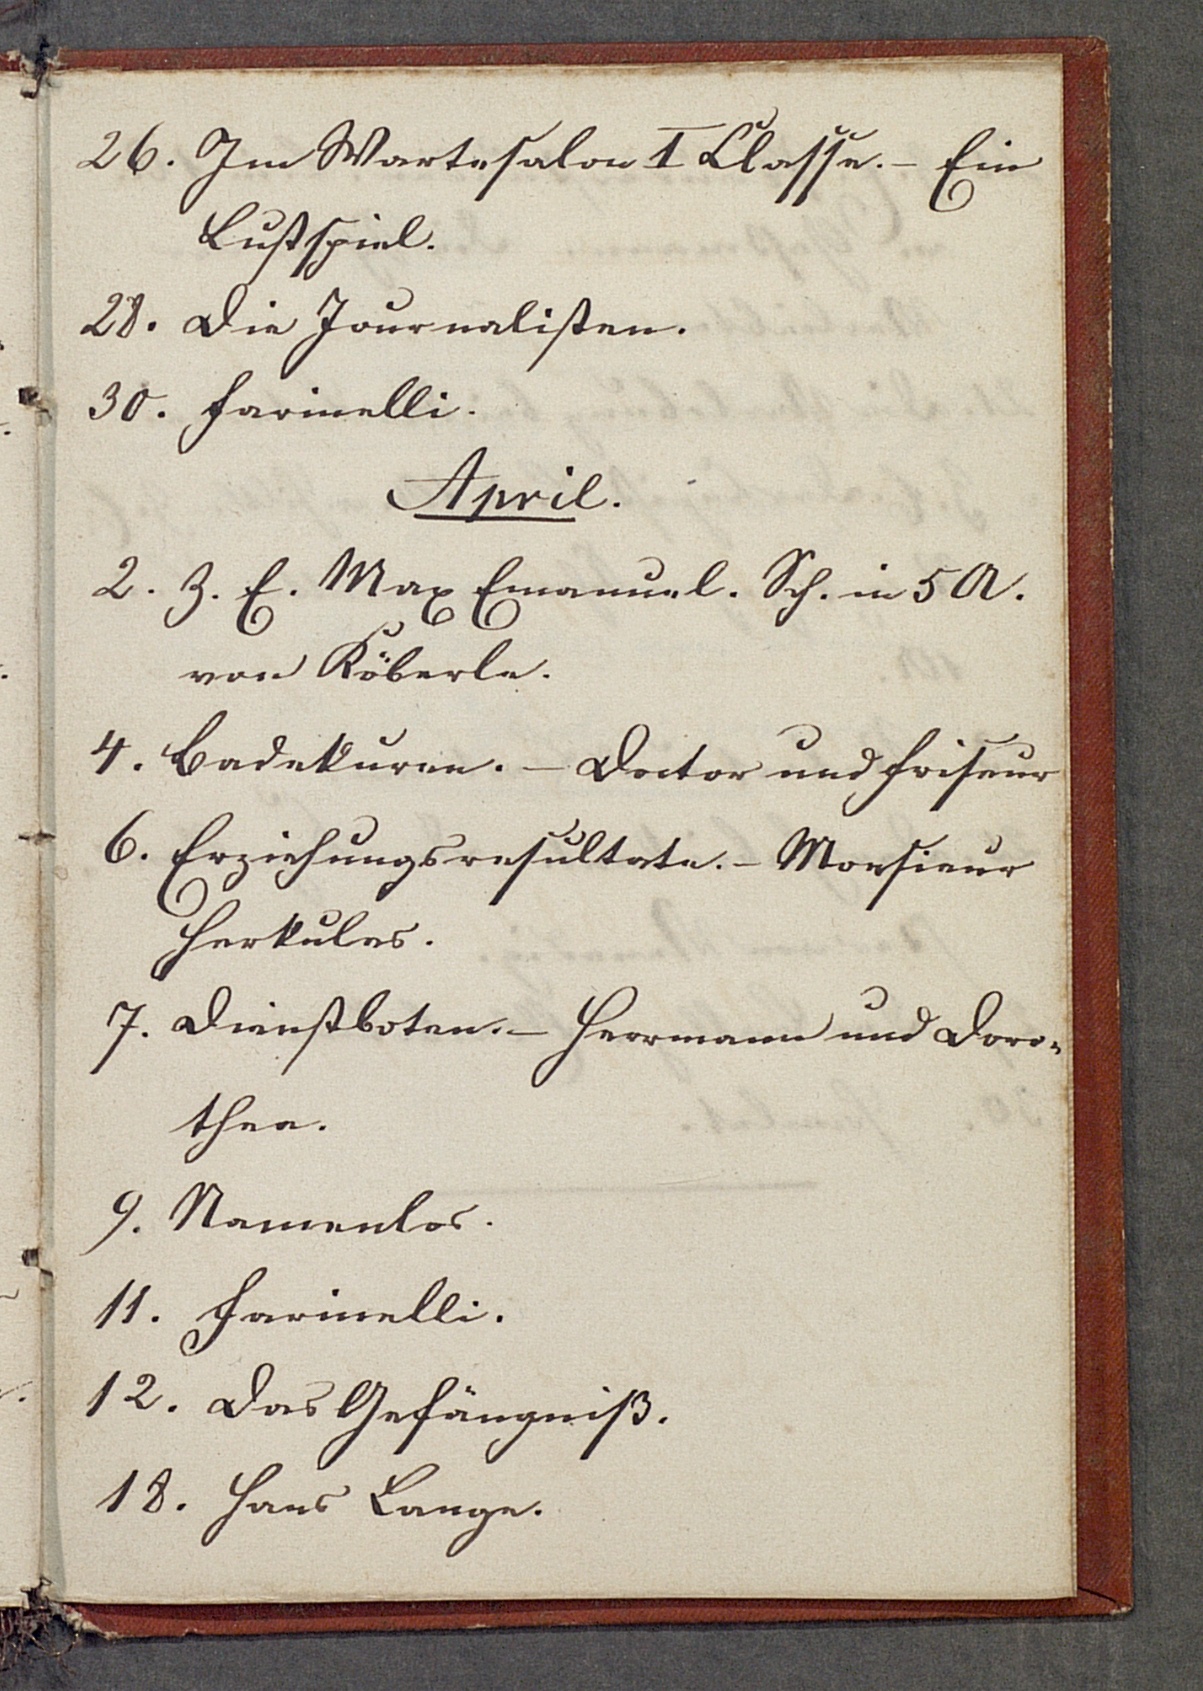 26. Im Wartesalon I Classe. – Ein
Lustspiel.
28. Die Journalisten.
30. Farinelli.
April.
2. Z. E. Max Emanuel. Sch. in 5 A.
von Köberle.
4. Badekuren. – Doctor und Friseur
6. Erziehungsresultate. – Monsieur
Herkules.
7. Dienstboten. – Herrmann und Doro-
thea.
9. Namenlos.
11. Farinelli.
12. Das Gefängniß.
18. Hans Lange.